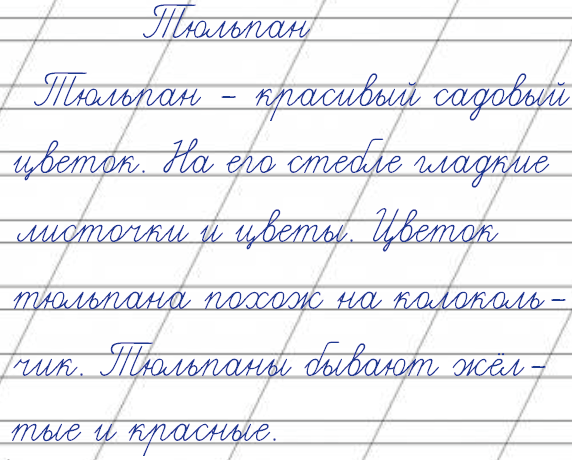 Тюльпан
Тюльпан - красивый садовый
цветок. На его стебле гладкие
листочки и цветы. Цветок
тюльпана похож на колоколь-
чик. Тюльпаны бывают жёл-
тые и красные.